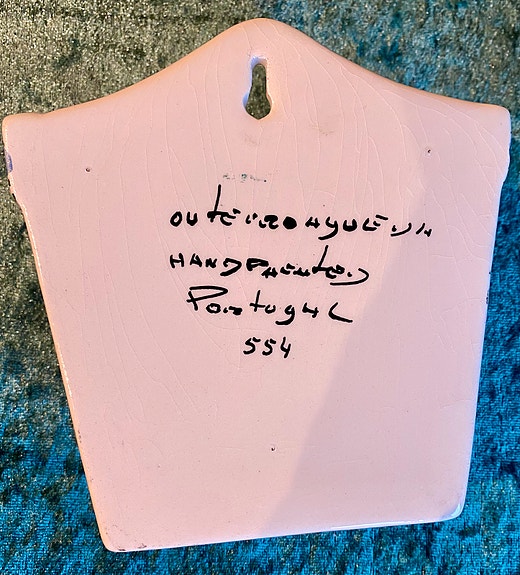 OUTEIRO AGUEDA
HANDPAENTED
PORTUGAL
554